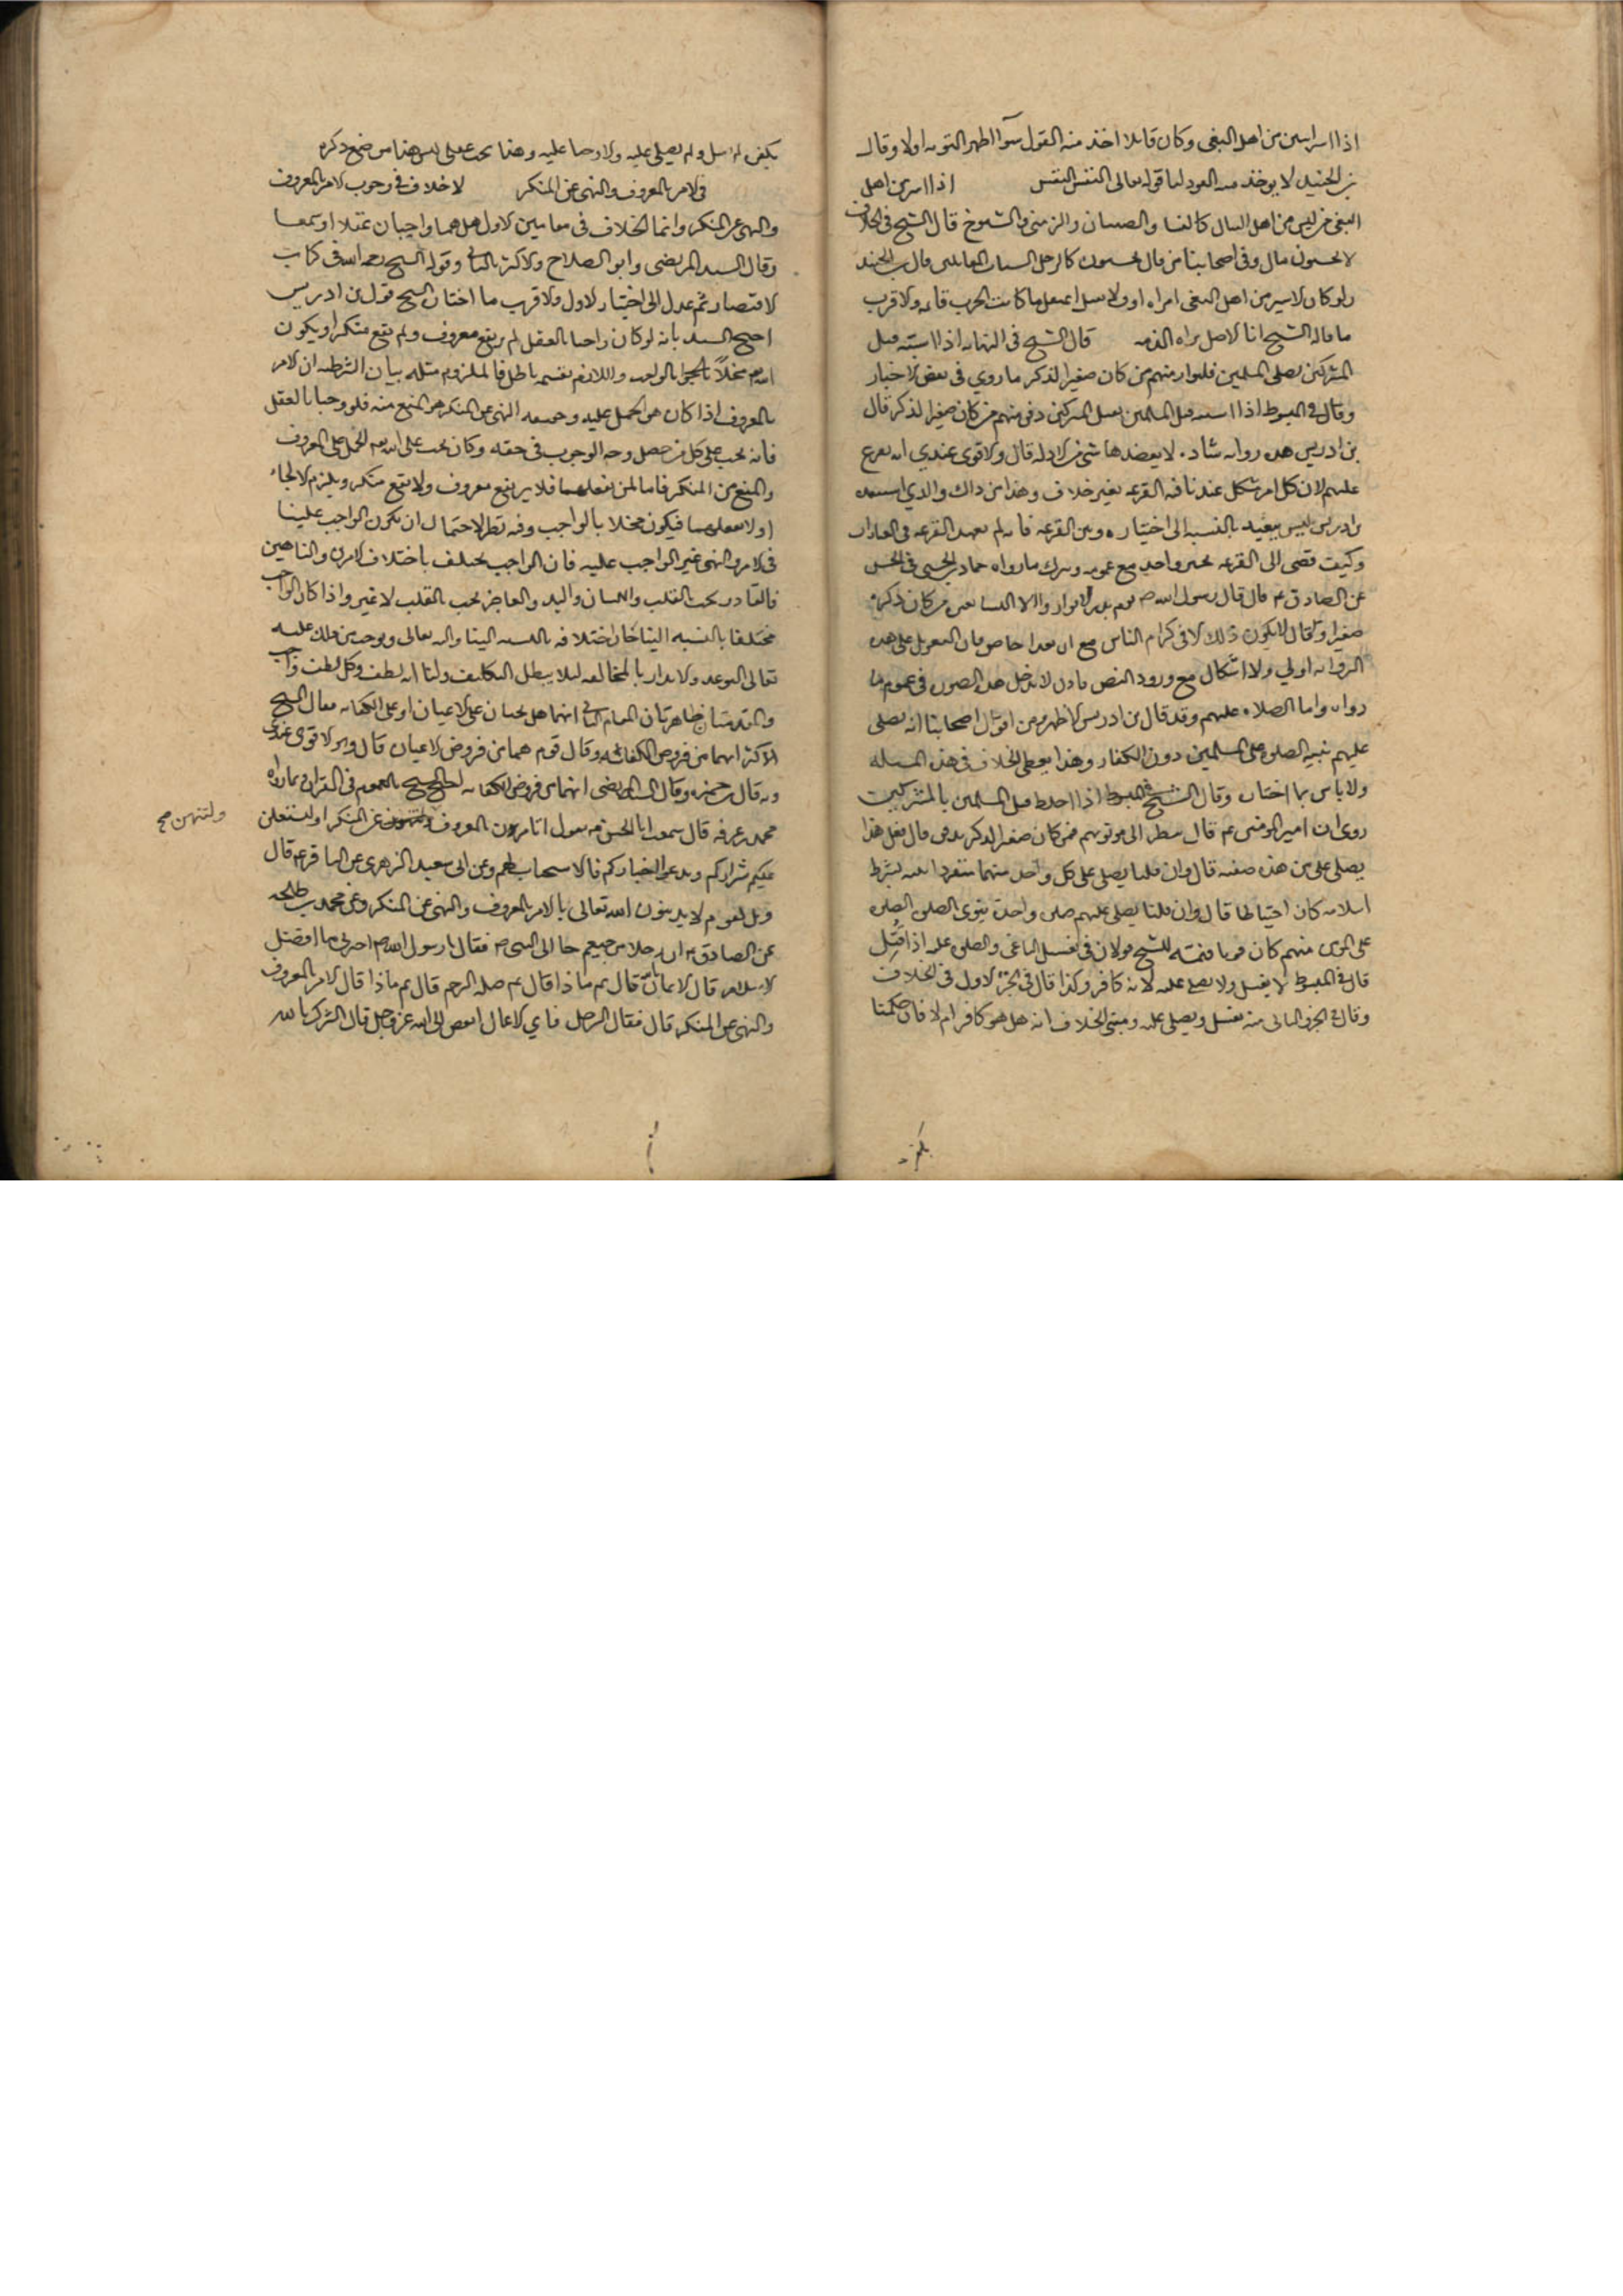 اذا اسر اسير من اهل البغي وكان قاتلا اخذ منه القود سوآ اظهر التوبه اولا وقال
بن الجنيد لا يوخذ منه القود لنا قوله تعالى النفس بالنفس اذا اسر من اهل
البغي من ليس من اهل القتال كالنسا والصبيان والزمنى والشيوخ قال الشيخ في الخلاف
لا يحبسون قال وفي اصحابنا من قال يحبسون كالرجل الشبان المقاتلين قال بن الجنيد
ولو كان الاسير من اهل البغي امراه او الحرب قائمه والاقرب
ما قاله الشيخ لنا الاصل براه الذمه قال الشيخ في النهايه اذا اشتبه قتلى
المشركين بقتلى المسلمين فليوار منهم من كان صغير الذكر ما روي في بعض الاخبار
وقال في المبسوط اذا اشتبه قتلى المسلمين بقتلى المشركين دفن منهم من كان صغير الذكر قال
بن ادريس هذه روايه شاذه لا يعضدها شي من الادله قال والاقوى عندي انه يقرع
عليهم لان كل امر مشكل عندنا فيه القرعه بغير خلاف وهذا من ذاك والذي استبعده
بن ادريس ليس ببعيد بالنسبه الى اختياره وبين القرعه فانه لم يعهد القرعه في العبادات
وكيف قضى الى القرعه بخبر واحد مع عمومه وترك ما رواه حماد بن يحيى في الحسن
عن الصادق ع قال قال رسول الله ص يوم بدر لا تواروا الا من كان ذكره
صغيرا وقال لا يكون ذلك الا في كرام الناس مع ان هذا خاص فان التعويل على هذه
الروايه اولى ولا اشكال مع ورود النص لا يدخل هذه الصوره في عموم ما
رواه واما الصلاه عليهم وقد قال بن ادريس الاظهر من اقوال اصحابنا انه يصلى
عليهم بنيه الصلوه على المسلمين دون الكفار وهذا يعطي الخلاف في هذه المسله
ولا باس بما اختاره وقال الشيخ في المبسوط اذا اختلط قتلى المسلمين بالمشركين
روي ان امير المومنين ع قال ينظر الى موتزرهم فمن كان صغير الذكر يدفن قال فعلى هذا
يصلى على من هذه صفته قال وان قلنا يصلى على كل واحد منهما منفردا بنيه بشرط
اسلامه كان احتياطا قال وان قلنا يصلى عليهم صلوه واحده ينوي بالصلوه الصلوه
على المومنين منهم كان قويا للشيخ قولان في غسل الباغي والصلوه عليه اذا قتل
قال في المبسوط لا يغسل ولا يصلى عليه لانه كافر وكذا قال في الجز الاول في الخلاف
وقال في الجز الثاني منه يغسل ويصلى عليه ومبنى الخلاف انه هل هو كافر ام لا فان حكمنا
بكفره
بكفره لم يغسل ولم يصلى عليه والا وجبا عليه وهذا بحث عقلي ليس هذا من ضع ذكره
في الامر بالمعروف والنهي عن المنكر لا خلاف في وجوب الامر بالمعروف
والنهي عن المنكر وانما الخلاف في مقامين الاول هل هما واجبان عقلا او سمعا
وقال السيد المرتضى وابو الصلاح والاكثر بالثاني وقواه الشيخ رحمه الله في كتاب
الاقتصاد ثم عدل الى اختيار الاول والاقرب ما اختاره الشيخ قول بن ادريس
احتج السيد بانه لو كان واجبا بالعقل لم يرتفع معروف ولم يقع منكر او يكون
الله تع مخلا بالواجب واللازم بقسميه باطل فالملزوم مثله بيان الشرطيه ان الامر
بالمعروف اذا كان هو الحمل عليه وحقيقه النهي عن المنكر هو المنع منه فلو وجبا بالعقل
فانه يجب على كل من حصل وجه الوجوب في حقه وكان يجب على الله تع الحمل على المعروف
والمنع من المنكر فاما ان يفعلهما فلا يرتفع معروف ولا يقع منكر ويلزم الالجاء
او لا يفعلهما فيكون مخلا بالواجب وفيه نظر لاحتمال ان يكون الواجب علينا
في الامر والنهي غير الواجب عليه فان الواجب يختلف باختلاف الامرين والناهين
فالقادر يجب بالقلب واللسان واليد والعاجز يجب بالقلب لا غير واذا كان الواجب
مختلفا بالنسبه الينا جاز اختلافه بالنسبه الينا واليه تعالى
تعالى التوعد والانذار بالمخالفه ليلا يبطل التكليف ولنا انه لطف وكل لطف واجب
والمقدمتان ظاهرتان المقام الثاني انهما هل يجبان على الاعيان او على الكفايه فقال الشيخ
الاكثر انهما من فروض الكفايه وقال قوم هما من فروض الاعيان قال وهو الاقوى عندي
وبه قال بن حمزه وقال السيد المرتضى انهما من فروض الكفايه احتج الشيخ بالعموم في القران وبما رواه
محمد بن عرفه قال سمعت ابا الحسن ع يقول لتامرون بالمعروف ولتنهون عن المنكر او ليستعملن
ولتنهن صح
عليكم شراركم ويدعو خياركم فلا يستجاب لهم وعن ابي سعيد الزهري عن الباقر ع قال
ويل لقوم لا يدينون الله تعالى بالامر بالمعروف والنهي عن المنكر وعن محمد بن طلحه
عن الصادق ع ان رجلا من خثعم جا الى النبي ص فقال يا رسول الله ص اخبرني ما افضل
الاسلام قال الايمان بالله قال ثم ماذا قال ثم صله الرحم قال ثم ماذا قال الامر بالمعروف
والنهي عن المنكر قال فقال الرجل فاي الاعمال ابغض الى الله عز وجل قال الشرك بالله